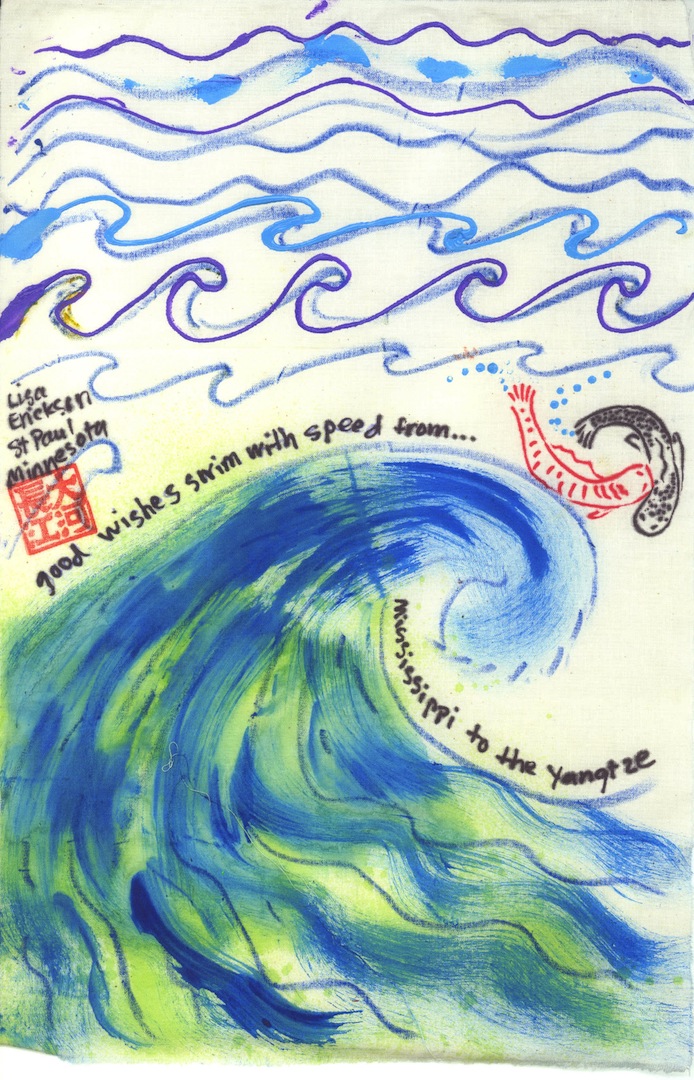 Lisa
Erickson
St Paul
Minnesota
大河
長江
good wishes swim with speed from...
Mississippi to the Yangtze